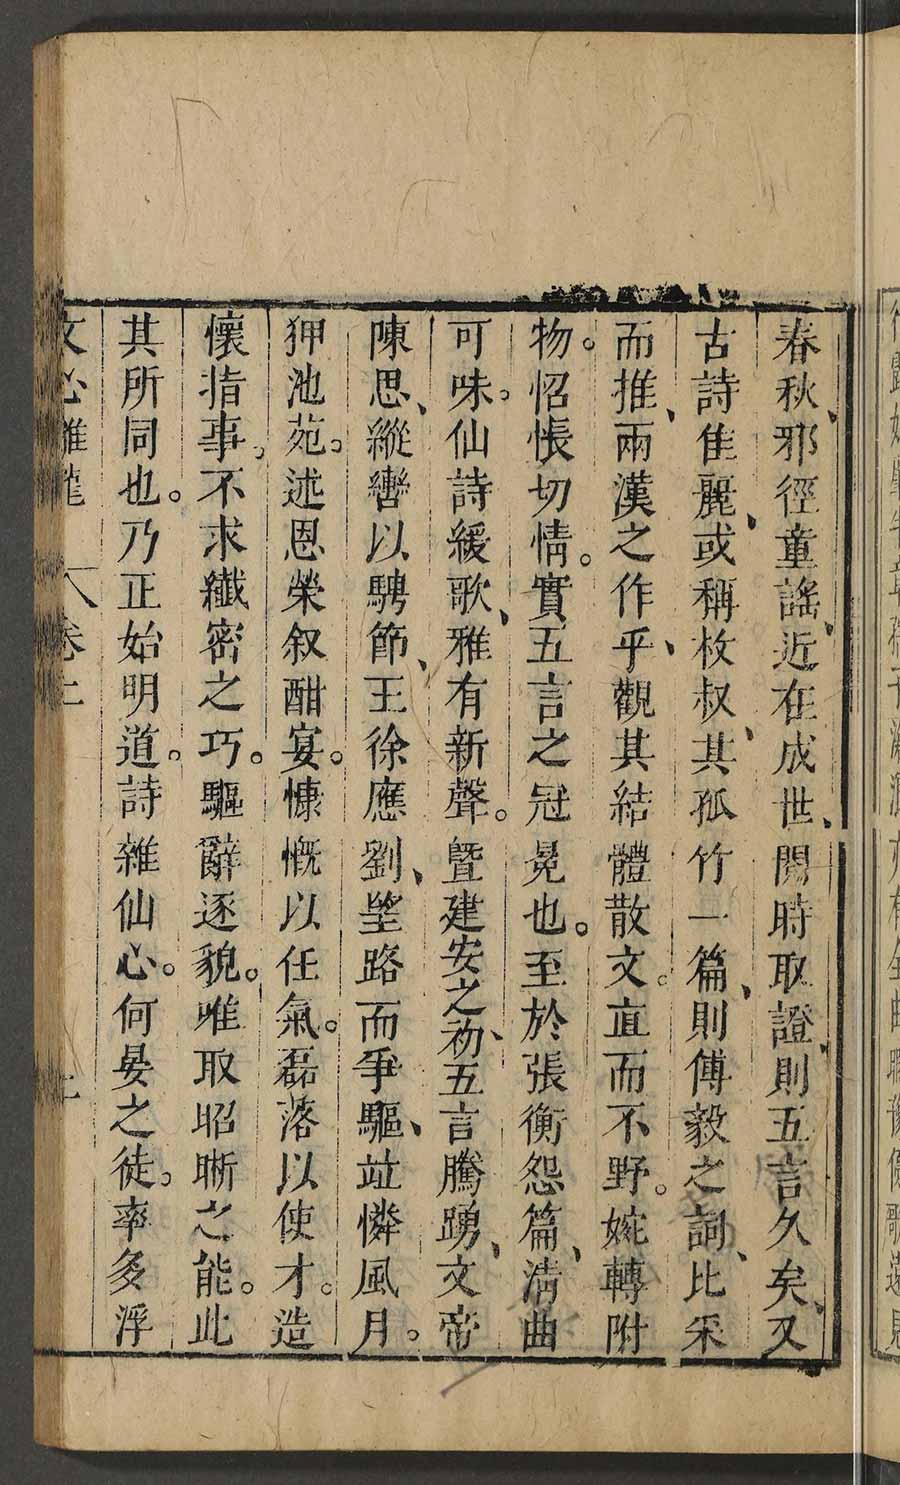 春秋、邪徑童謠、近在成世、閱時取證、則五言久矣、又
古詩佳麗、或稱枚叔、其孤竹一篇、則傅毅之詞、比采
而推、兩漢之作乎、觀其結體散文。直而不野。婉轉附
物。怊悵切情。實五言之冠冕也。至於張衡怨篇、清曲
可味。仙詩緩歌、雅有新聲。曁建安之初、五言騰踴、文帝
陳思、縱轡以騁節、王徐應劉、望路而爭驅、竝憐風月。
狎池苑。述恩榮叙酣宴。慷慨以任氣。磊落以使才。造
懷指事。不求纖密之巧。驅辭逐貌。唯取昭晰之能。此
其所同也。乃正始明道。詩雜仙心。何晏之徒。率多浮
文心雕龍 卷上